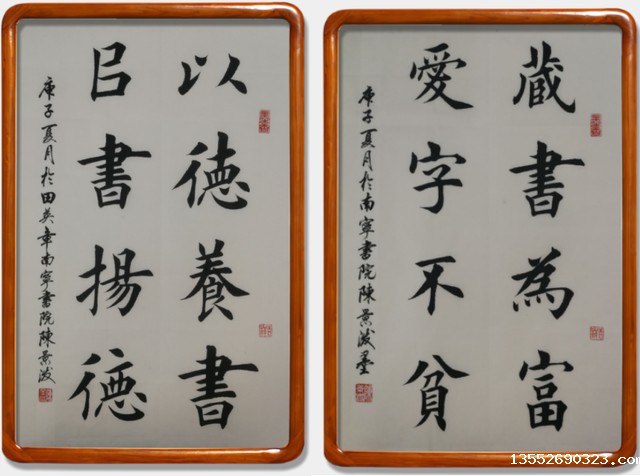 以德養書
㠯書揚德
庚子夏月於田英章南寧書院陳景波
藏書為富
愛字不貧
庚子夏月於南寧書院陳景波墨
13552690323.com